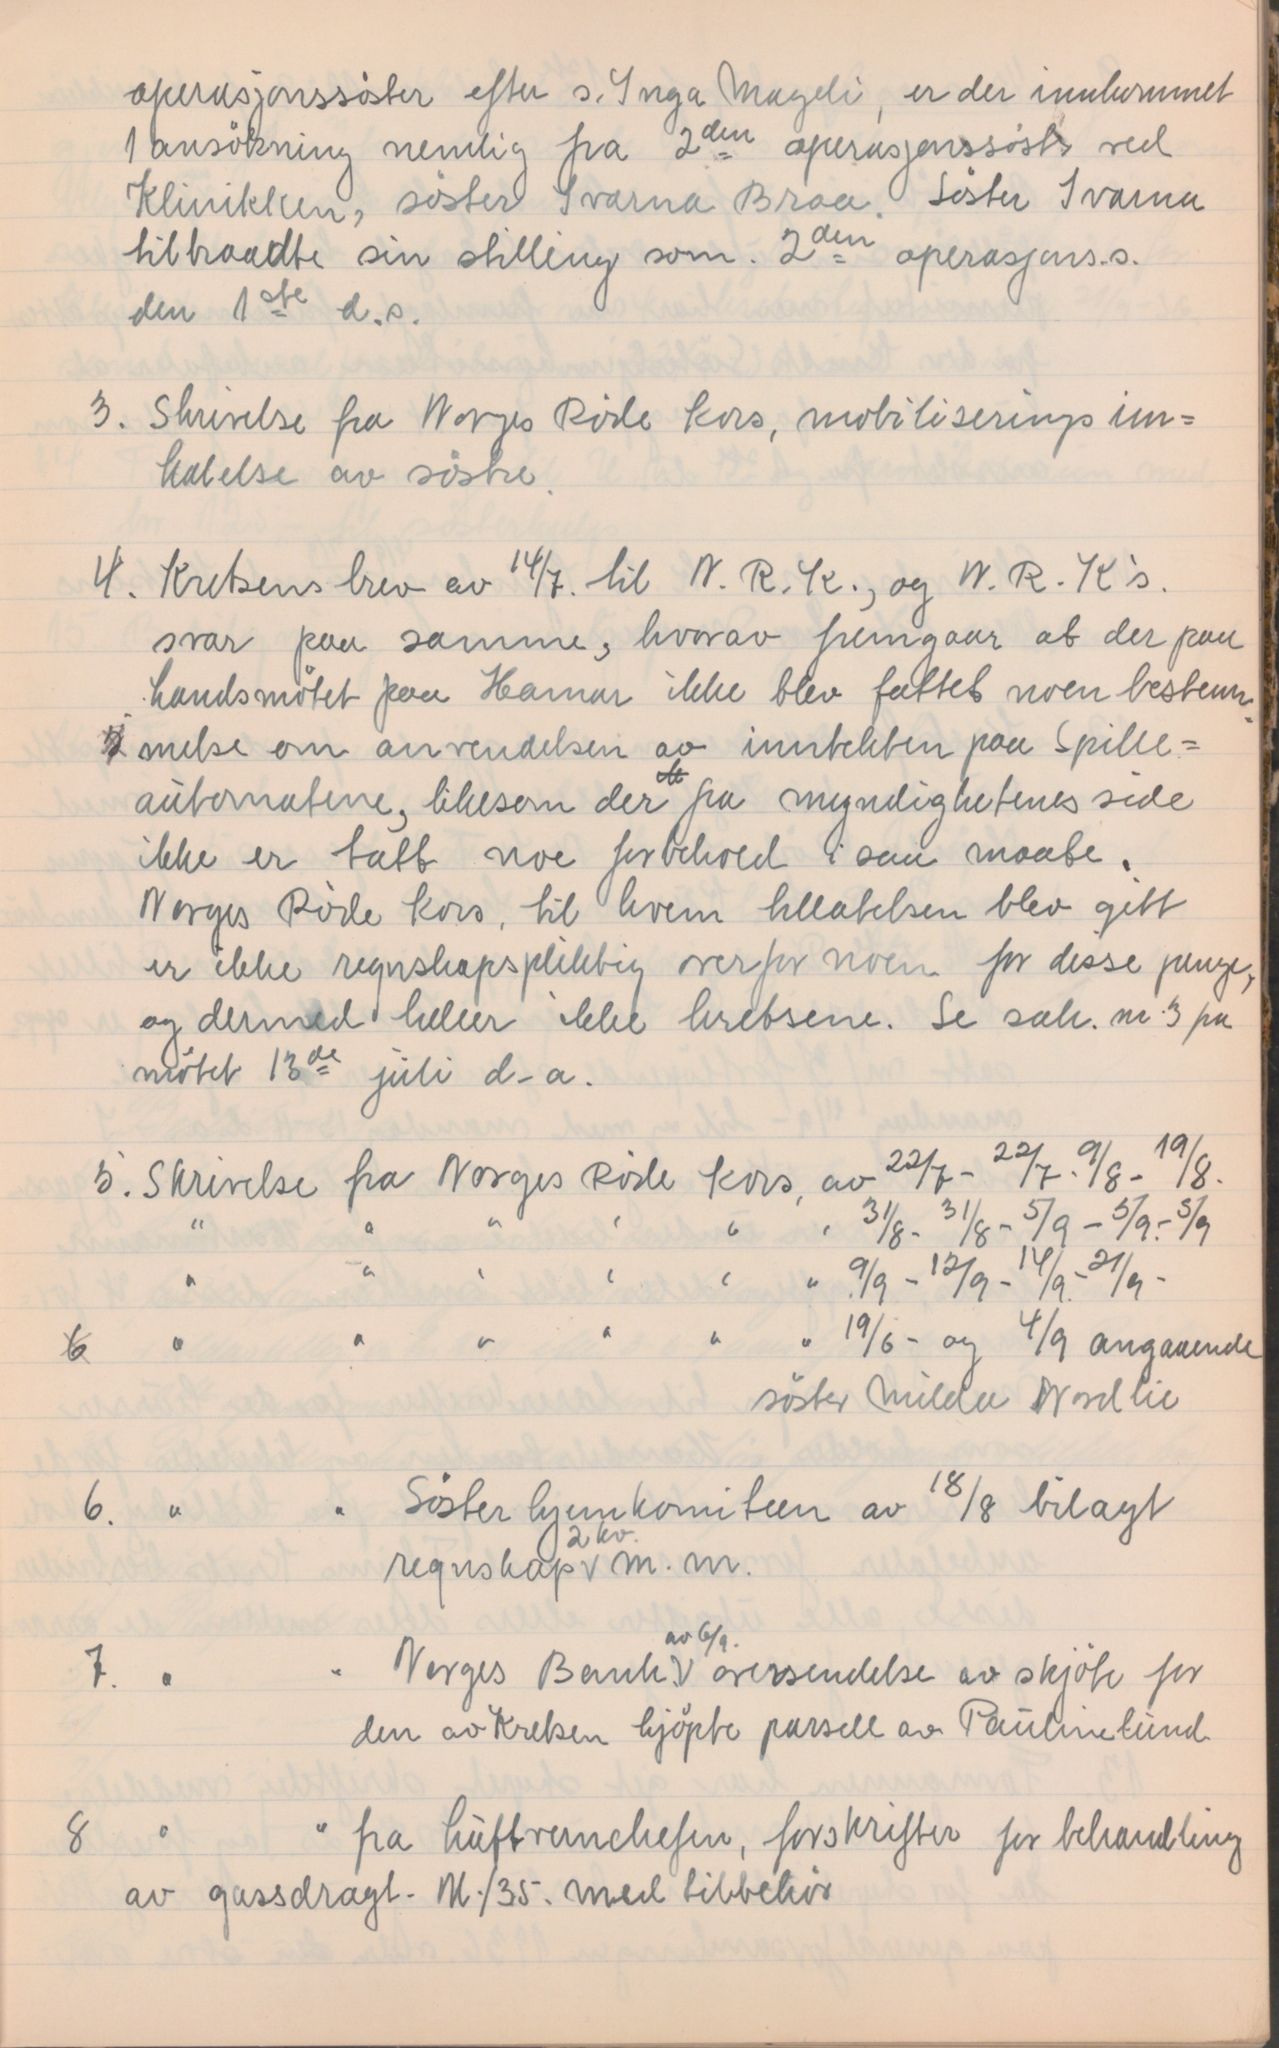 operasjonssöster efter s. Inga Mageli, er der innkommet
1 ansökning nemlig fra 2den operasjonssöster ved
Klinikken, söster Ivarna Braa. Söster Ivarna
tilbraadte sin stilling som. 2den operasjons.s.
den 1ste d.s.
3. Skrivelse fra Norges Röde Kors, mobiliserings inn=
kalelse av söstre.
4. Kretsens brev av 14/7. til N.R.K., og N.R.K's.
svar paa samme, hvorav fremgaar at der paa
landsmötet paa Hamar ikke blev fattet noen bestem=
melse om anvendelsen av inntekten paa Spille=
automatene, likesom der fra myndighetenes side
ikke er tatt noe forbehold i saa maate.
Norges Röde Kors, til hvem tillatelsen blev gitt
er ikke regnskapspliktig overfor noen for disse penge,
og dermed heller ikke kretsene. Se sak. nr. 3 paa
mötet 13de juli d-a.
5. Skrivelse fra Norges Röde Kors, av 22/7 - 22/7 - 9/8 - 19/8.
" " " " " " 31/8 - 31/8 - 5/9 - 5/9 - 5/9
" " " " " " 9/9 - 12/9 - 14/9 - 21/9 -
6 " " " " " " 19/6 - og 4/9 angaaende
söster Milda Nordlie
6. " " Söster hjemkomiteen av 18/8 bilagt
regnskap V 2 kv. m.m.
7. " " Norges Bank V av 6/9. oversendelse av skjöte for
den av Kretsen kjöpte parsell av Paulinelund
8 " " fra Luftvernchefen, forskrifter for behandling
av gassdragt. M./35. med tilbehör